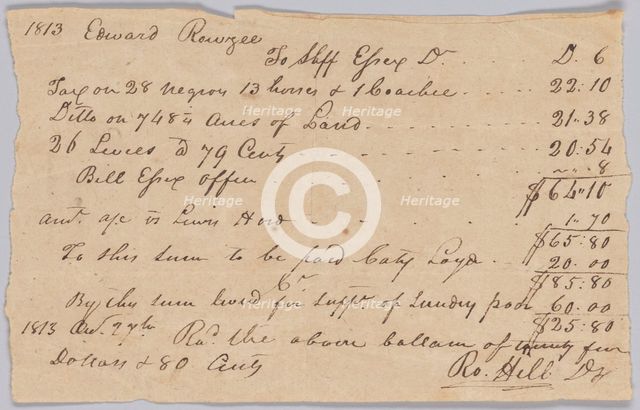 1813 Edward Rowzee
To Shff Essex Dr. D. C
Tax on 28 negroes 13 horses & 1 Coachee 22.10
Ditto on 748½ Acres of Land 21.38
26 Levies @ 79 Cents 20.54
Bell Essex offen 8
$64.10
amt. a/c vs Lewis Hord 1.70
$65.80
To this sum to be paid Caty Loyd 20.00
Cr. $85.80
By this sum levied for suppt. of Sundry poor 60.00
$25.80
1813 7th Recd. the above ballance of twenty five
Dollars & 80 Cents
Ro. Hill DS
Heritage
Heritage
Heritage
Heritage
Heritage
Heritage
C